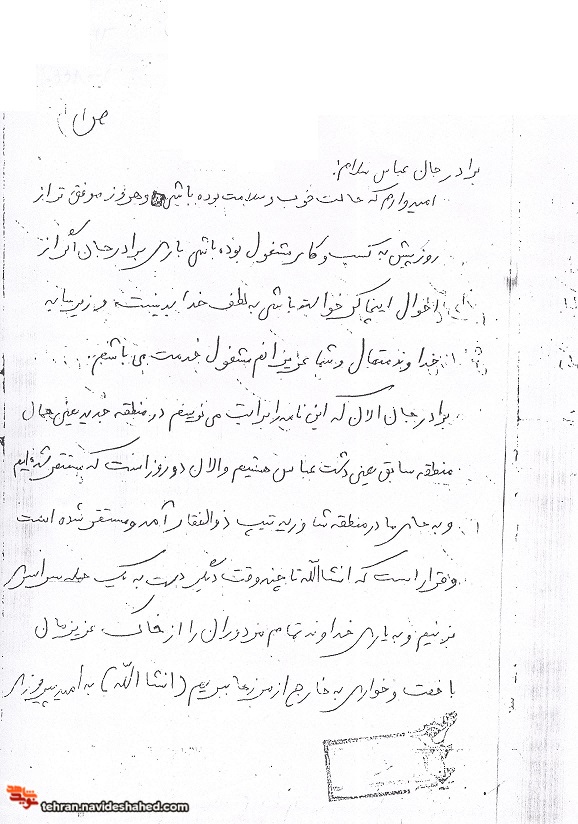 ص ۱
برادر جان عباس سلام:
امیدوارم که حالت خوب و سلامت بوده باشی و هر روز موفق تر از
روز پیش به کسب و کار مشغول بوده باشی باری برادر جان اگر از
احوال اینجانب خواسته باشی به لطف خدا بد نیست و زیر سایه
خداوند متعال و شما عزیزانم مشغول خدمت می باشم.
برادر جان الان که این نامه را برایت می نویسم در منطقه جدید یعنی همان
منطقه سابق یعنی دشت عباس هستیم و الان دو روز است که مستقر شده ایم
و به جای ما در منطقه تیپ ذوالفقار آمده و مستقر شده است
و قرار است که انشاالله تا چند وقت دیگر دست به یک حمله سراسری
بزنیم و به یاری خداوند تمام مزدوران را از خاک عزیزمان
با خفت و خواری به خارج از مرزها ببریم (انشاالله) به امید پیروزی
نوید شاهد
tehran.navideshahed.com